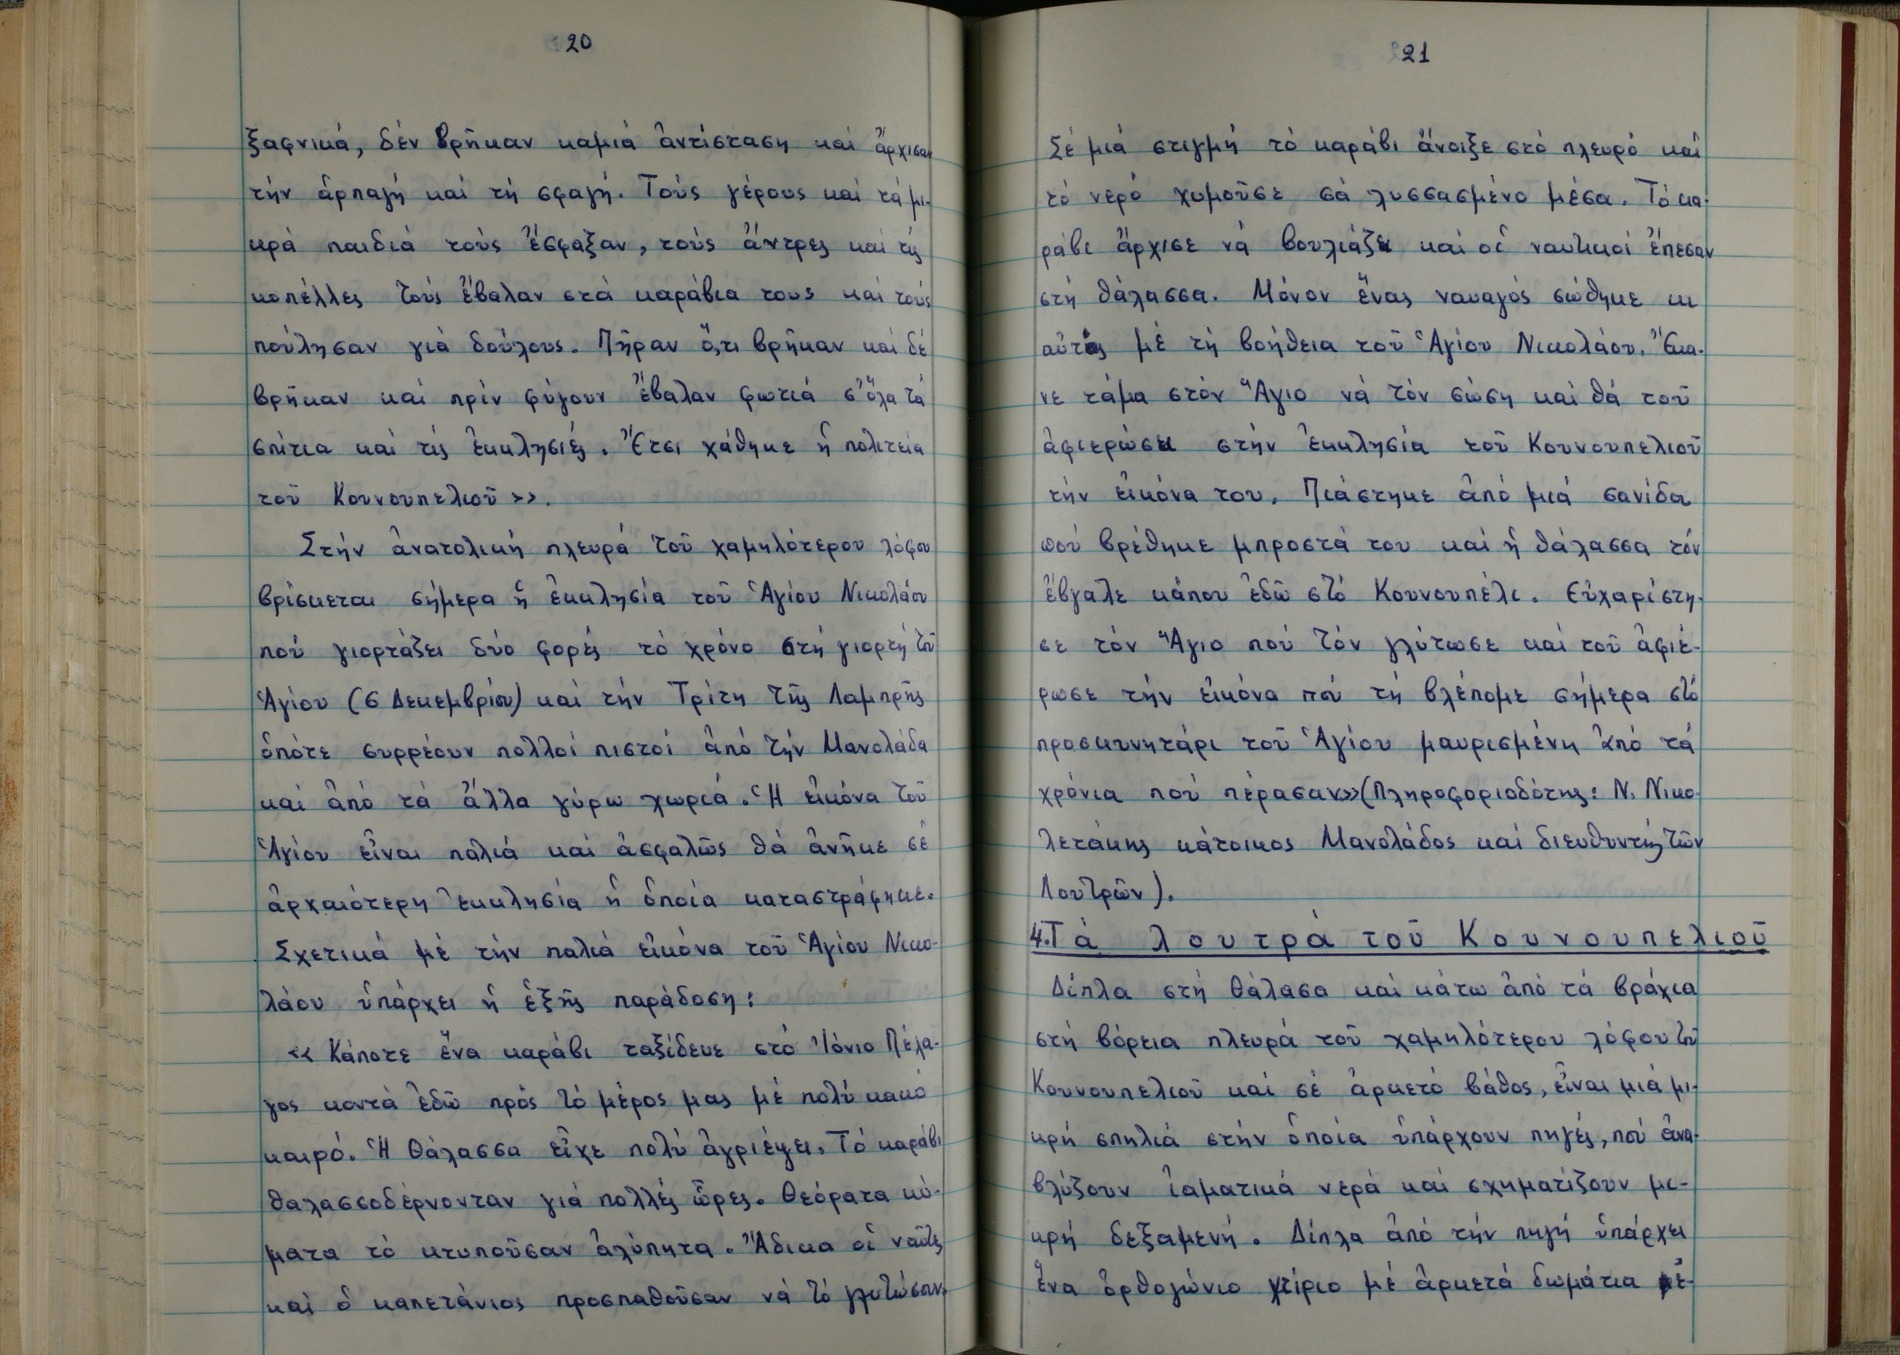 20
ξαφνικά, δέν βρῆκαν καμιά ἀντίσταση καί ἄρχισαν
τήν ἁρπαγή καί τή σφαγή. Τούς γέρους καί τά μι-
κρά παιδιά τούς ἔσφαξαν, τούς ἄντρες καί τίς
κοπέλλες τούς ἔβαλαν στά καράβια τους καί τούς
πούλησαν γιά δούλους. Πῆραν ὅ,τι βρῆκαν καί δέ
βρῆκαν καί πρίν φύγουν ἔβαλαν φωτιά σ' ὅλα τά
σπίτια καί τίς ἐκκλησιές. Ἔτσι χάθηκε ἡ πολιτεία
τοῦ Κουνουπελιοῦ».
Στήν ἀνατολική πλευρά τοῦ χαμηλότερου λόφου
βρίσκεται σήμερα ἡ ἐκκλησία τοῦ Ἁγίου Νικολάου
πού γιορτάζει δύο φορές τό χρόνο στή γιορτή τοῦ
Ἁγίου (6 Δεκεμβρίου) καί τήν Τρίτη τῆς Λαμπρῆς
ὁπότε συρρέουν πολλοί πιστοί ἀπό τήν Μανολάδα
καί ἀπό τά ἄλλα γύρω χωριά. Ἡ εἰκόνα τοῦ
Ἁγίου εἶναι παλιά καί ἀσφαλῶς θά ἀνῆκε σέ
ἀρχαιότερη ἐκκλησία ἡ ὁποία καταστράφηκε.
Σχετικά μέ τήν παλιά εἰκόνα τοῦ Ἁγίου Νικο-
λάου ὑπάρχει ἡ ἑξῆς παράδοση:
«Κάποτε ἕνα καράβι ταξίδευε στό Ἰόνιο Πέλα-
γος κοντά ἐδῶ πρός τό μέρος μας μέ πολύ κακό
καιρό. Ἡ θάλασσα εἶχε πολύ ἀγριέψει. Τό καράβι
θαλασσοδέρνονταν γιά πολλές ὧρες. Θεόρατα κύ-
ματα τό κτυποῦσαν ἀλύπητα. Ἄδικα οἱ ναῦτες
καί ὁ καπετάνιος προσπαθοῦσαν νά τό γλυτώσουν.
21
Σέ μιά στιγμή τό καράβι ἄνοιξε στό πλευρό καί
τό νερό χυμοῦσε σά λυσσασμένο μέσα. Τό κα-
ράβι ἄρχισε νά βουλιάζει καί οἱ ναυτικοί ἔπεσαν
στή θάλασσα. Μόνον ἕνας ναυαγός σώθηκε κι
αὐτός μέ τή βοήθεια τοῦ Ἁγίου Νικολάου. Ἔκα-
νε τάμα στόν Ἅγιο νά τόν σώση καί θά τοῦ
ἀφιερώσει στήν ἐκκλησία τοῦ Κουνουπελιοῦ
τήν εἰκόνα του. Πιάστηκε ἀπό μιά σανίδα
πού βρέθηκε μπροστά του καί ἡ θάλασσα τόν
ἔβγαλε κάπου ἐδῶ στό Κουνουπέλι. Εὐχαρίστη-
σε τόν Ἅγιο πού τόν γλύτωσε καί τοῦ ἀφιέ-
ρωσε τήν εἰκόνα πού τή βλέπομε σήμερα στό
προσκυνητάρι τοῦ Ἁγίου μαυρισμένη ἀπό τά
χρόνια πού πέρασαν»(Πληροφοριοδότης: Ν. Νικο-
λετάκης κάτοικος Μανολάδος καί διευθυντής τῶν
Λουτρῶν).
4. Τά λουτρά τοῦ Κουνουπελιοῦ
Δίπλα στή θάλασα καί κάτω ἀπό τά βράχια
στή βόρεια πλευρά τοῦ χαμηλότερου λόφου τοῦ
Κουνουπελιοῦ καί σέ ἀρκετό βάθος, εἶναι μιά μι-
κρή σπηλιά στήν ὁποία ὑπάρχουν πηγές, πού ἀνα-
βλύζουν ἰαματικά νερά καί σχηματίζουν μι-
κρή δεξαμενή. Δίπλα ἀπό τήν πηγή ὑπάρχει
ἕνα ὀρθογώνιο κτίριο μέ ἀρκετά δωμάτια μέ-